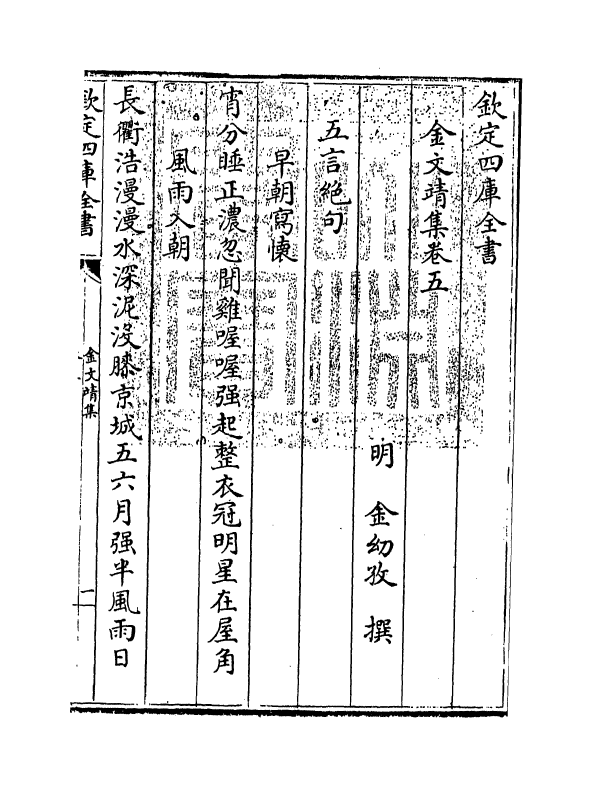 欽定四庫全書
金文靖集卷五
明 金幼孜 撰
五言絶句
早朝寫懐
宵分睡正濃忽聞雞喔喔强起整衣冠明星在屋角
風雨入朝
長衢浩漫漫水深泥沒膝京城五六月强半風雨日
欽定四庫全書
金文靖集
一